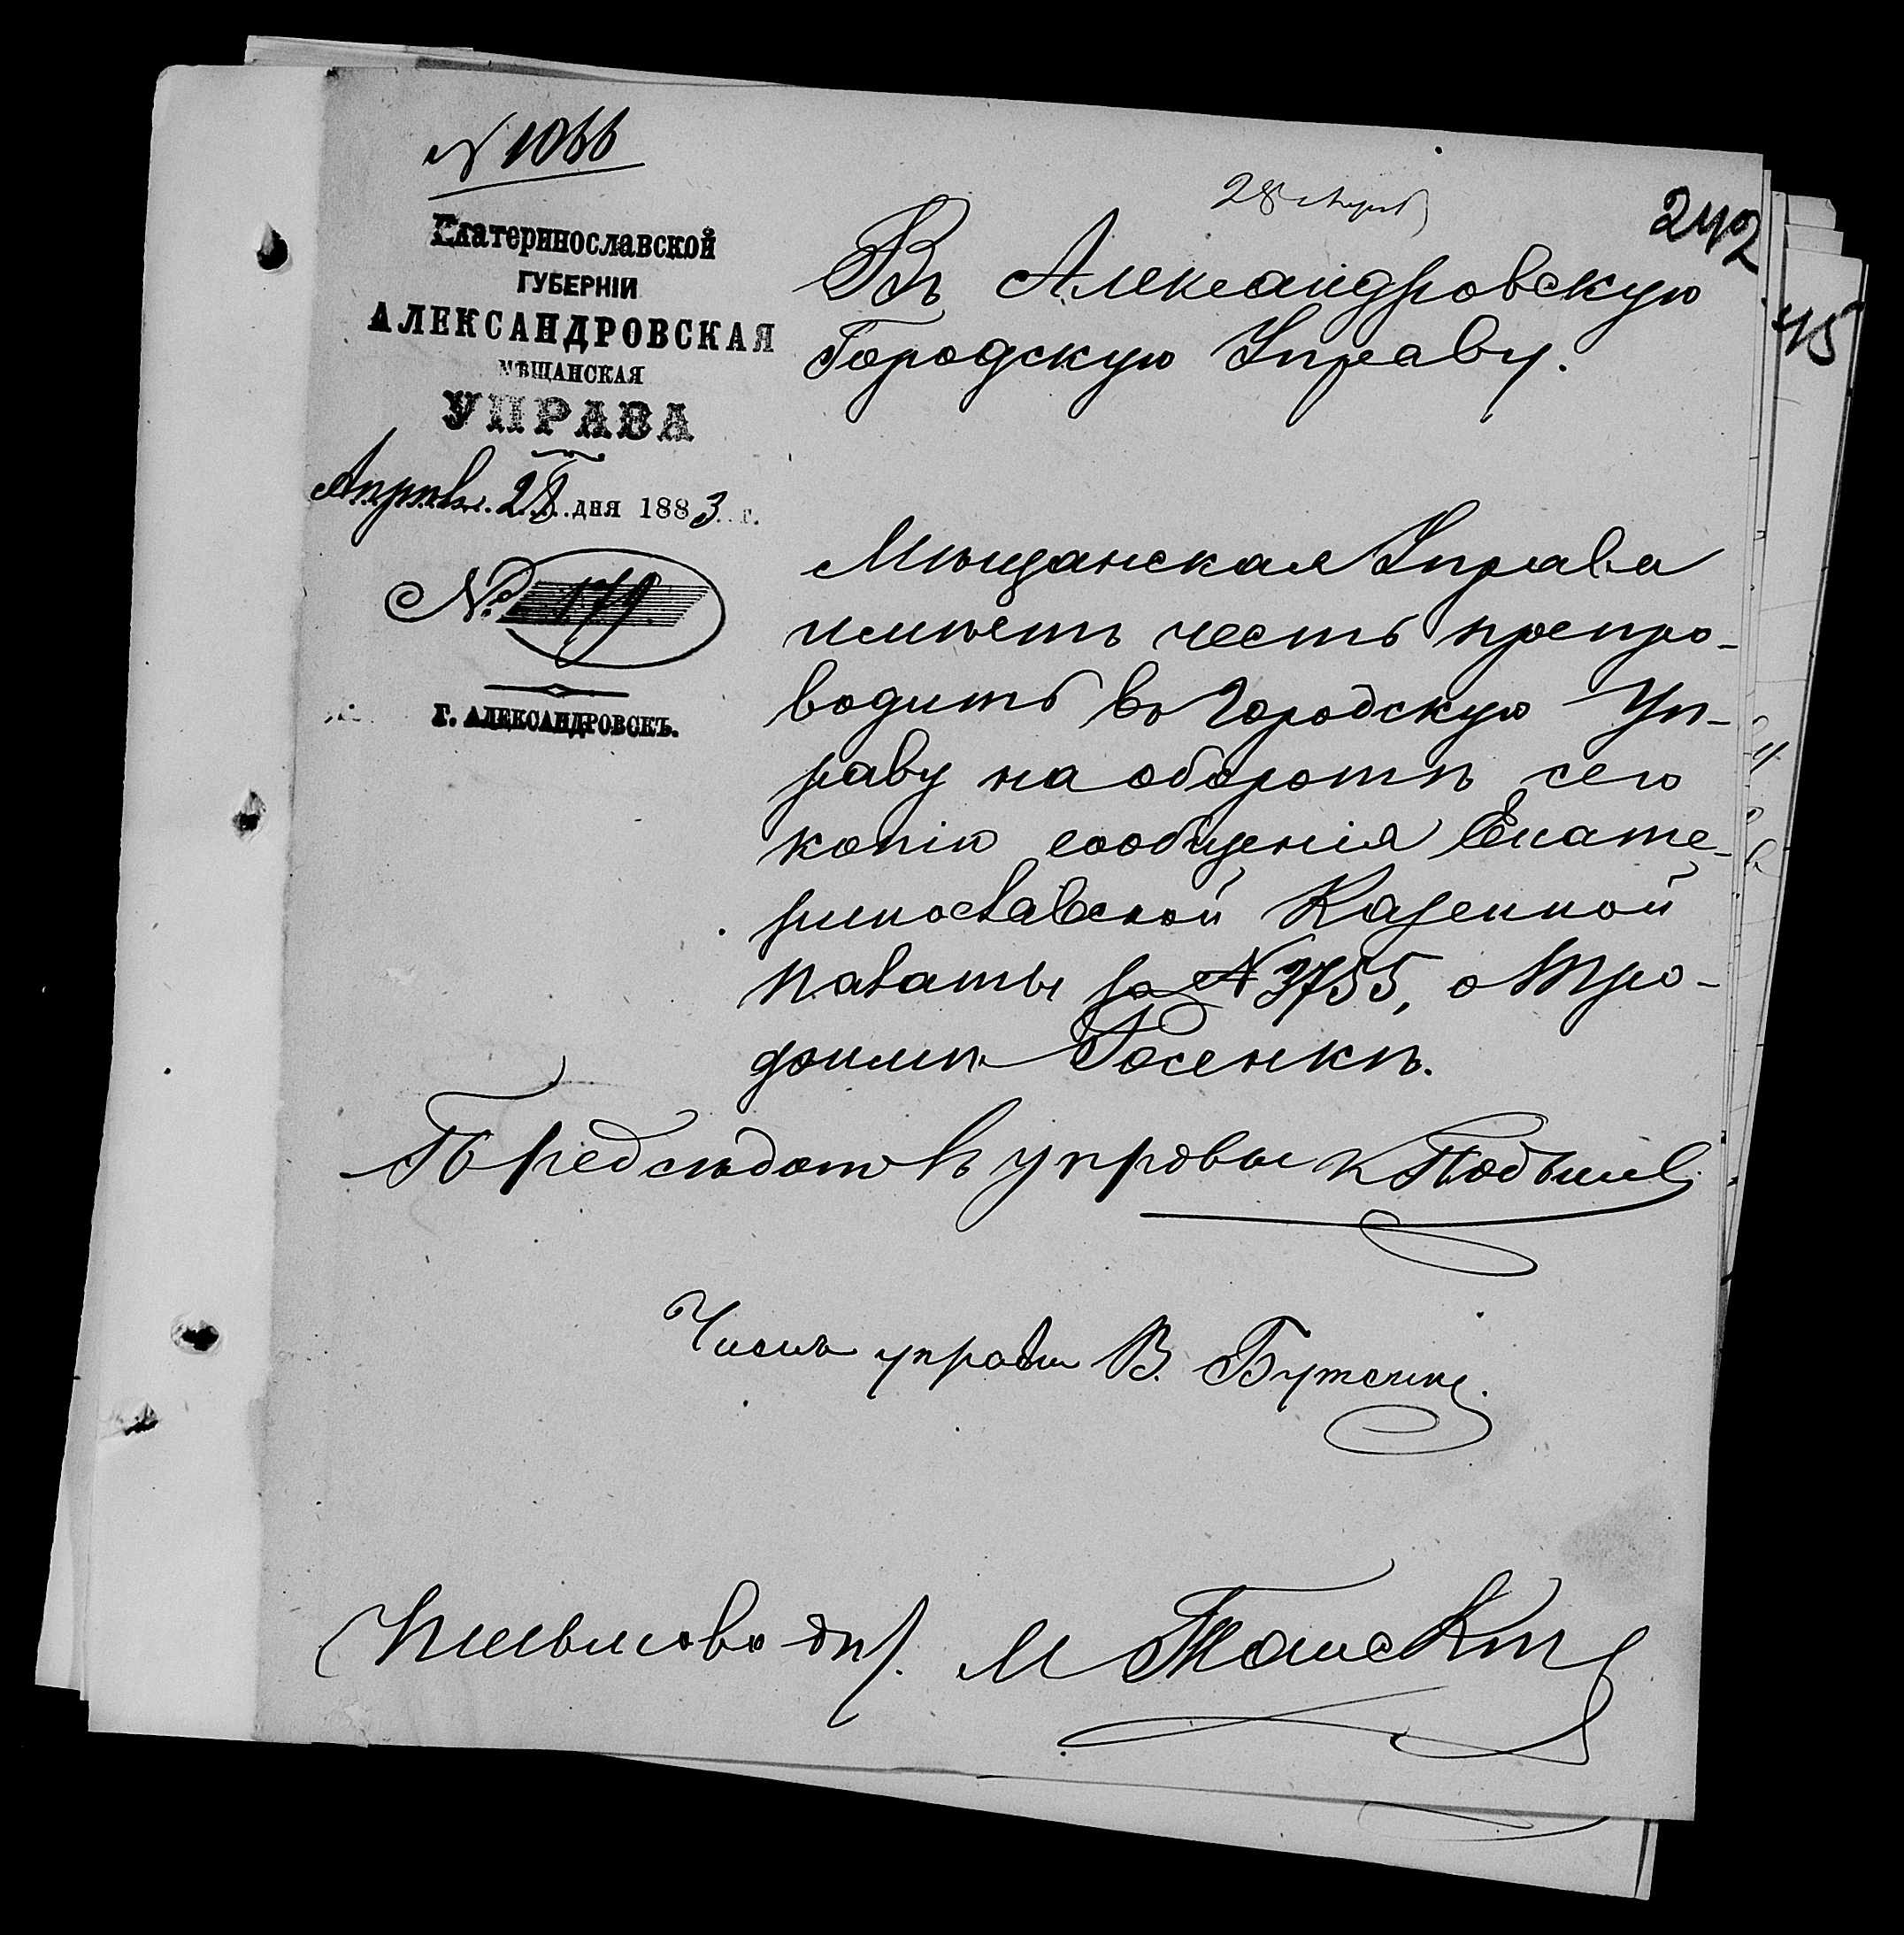 № 1066
28 Апреля
242
45
Екатеринославской
ГУБЕРНІИ
АЛЕКСАНДРОВСКАЯ
МѢЩАНСКАЯ
УПРАВА
Апрѣля 28 дня 1883 г.
№ 179
г. АЛЕКСАНДРОВСКЪ.
Въ Александровскую
Городскую Управу.
Мѣщанская Управа
имѣетъ честь препро-
водить въ Городскую Уп-
раву на оборотѣ сего
копію сообщенія Екате-
ринославской Казенной
палаты за № 3755, о Тро-
фимѣ Косенкѣ.
Председатель управы
Членъ управы В.
Письмовод. М